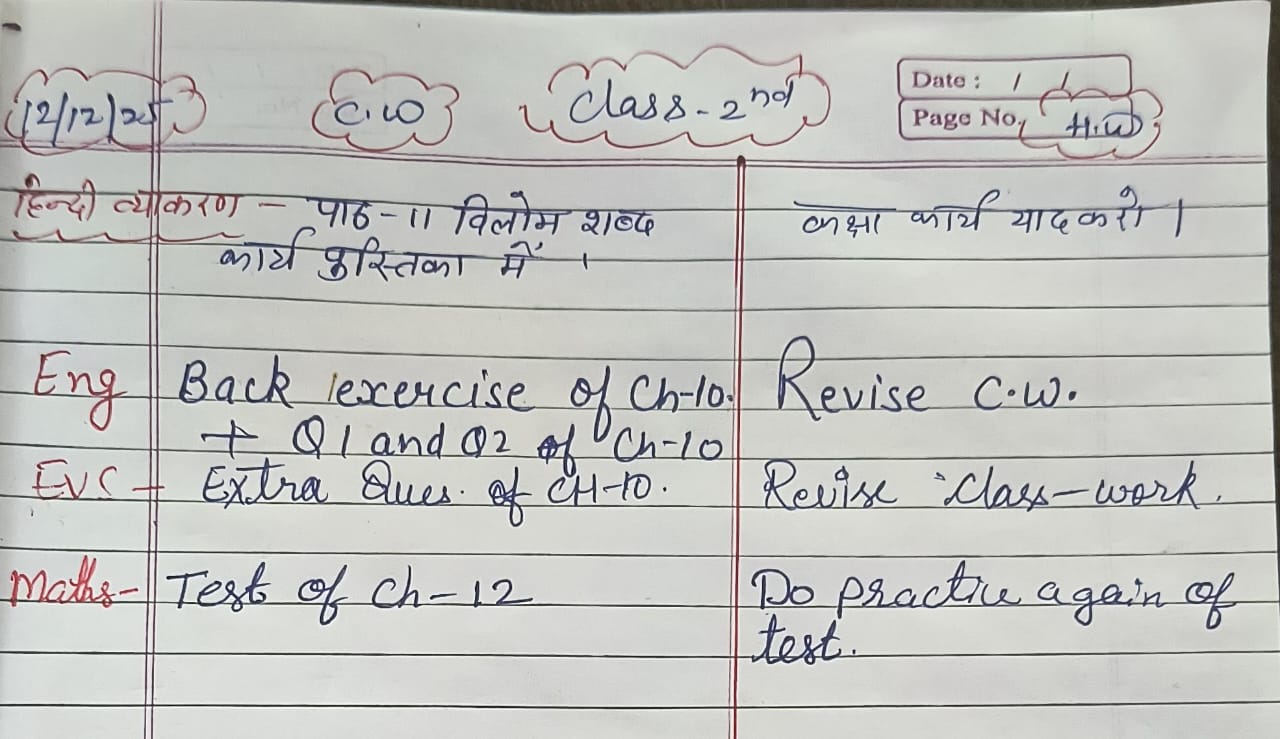 12/12/25 C.W Class-2nd Date: / /
Page No. H.W
हिन्दी व्याकरण - पाठ-11 विलोम शब्द कक्षा कार्य याद करो।
कार्य पुस्तिका में ।
Eng Back exercise of Ch-10. Revise C.W.
+ Q1 and Q2 of Ch-10
EVS - Extra Ques. of CH-10. Revise class-work.
Maths- Test of Ch-12 Do practice again of
test.